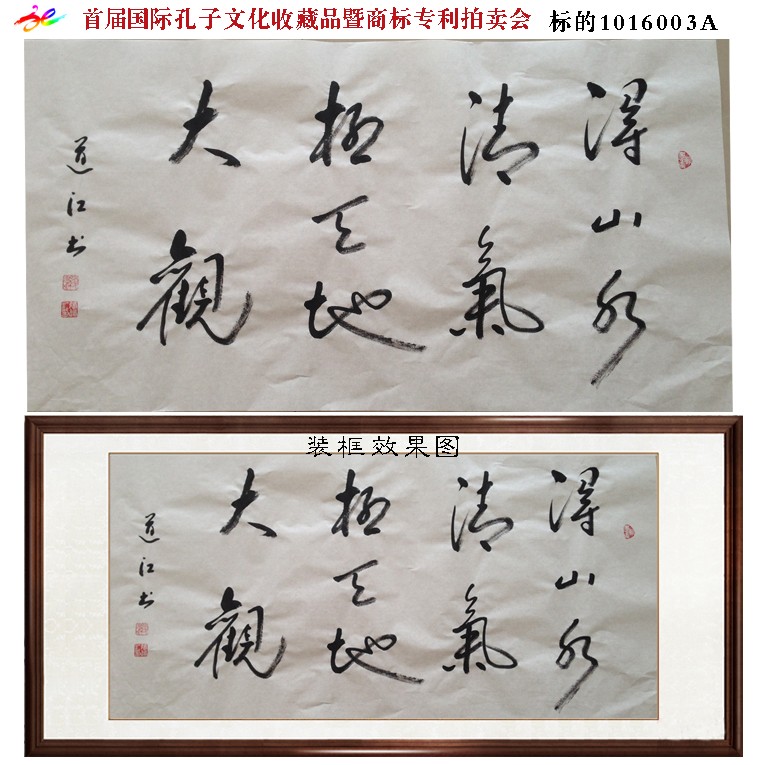 首届国际孔子文化收藏品暨商标专利拍卖会 标的1016003A
得山水
清氣
極天地
大觀
道江书
装框效果图
得山水
清氣
極天地
大觀
道江书